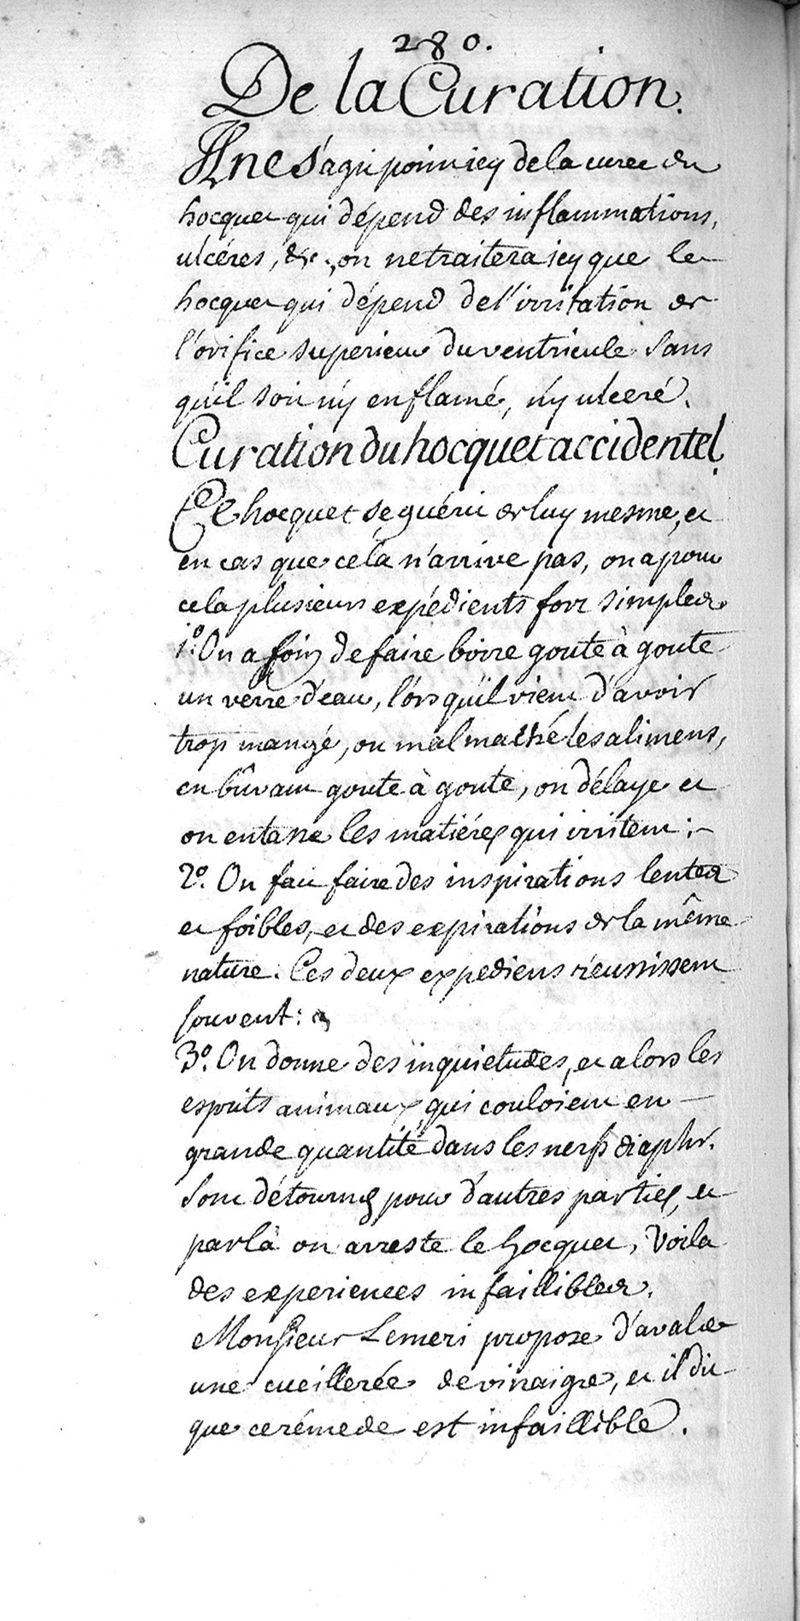 280.
De la Curation.
Il ne s'agit point icy de la cure du
hocquet qui dépend des inflammations,
ulcéres, &c., on ne traitera icy que le
hocquet qui dépend de l'irritation de
l'orifice superieur du ventricule sans
qu'il soit ny enflamé, ny ulceré.
Curation du hocquet accidentel.
Ce hocquet se guérit de luy mesme, et
en cas que cela n'arrive pas, on a pour
cela plusieurs expédients fort simples.
1.º On a soin de faire boire goute à goute
un verre d'eau, lorsqu'il vient d'avoir
trop mangé, ou mal maché les alimens,
en bûvant goute à goute, on délaye et
on entasne les matiéres qui irritent :
2.º On fait faire des inspirations lentes
et foibles, et des expirations de la même
nature. Ces deux expediens réussissent
souvent :
3.º On donne des inquietudes, et alors les
esprits animaux, qui couloient en
grande quantité dans les nerfs diaphr.
sont détournés pour d'autres parties, et
par là on arreste le hocquet, Voila
des experiences infaillibles.
Monsieur Lemeri propose d'avaler
une cueillerée de vinaigre, et il dit
que ce réméde est infaillible.